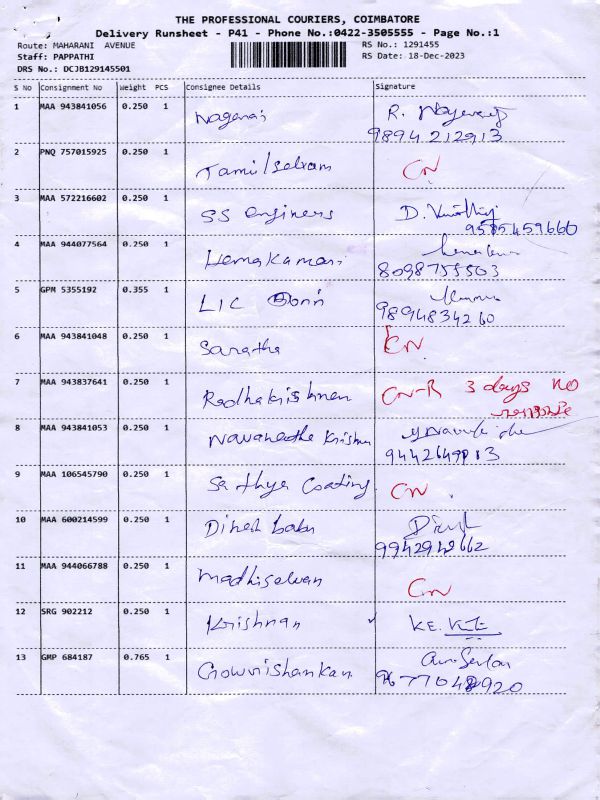 THE PROFESSIONAL COURIERS, COIMBATORE
Delivery Runsheet - P41 - Phone No.:0422-3505555 - Page No.:1
Route: MAHARANI AVENUE RS No.: 1291455
Staff: PAPPATHI RS Date: 18-Dec-2023
DRS No.: DCJB129145501
S No Consignment No Weight PCS Consignee Details Signature
1 MAA 943841056 0.250 1 Nagaraj R. Nagaraj
9894212913
2 PNQ 757015925 0.250 1 Tamilselvam CN
3 MAA 572216602 0.250 1 SS engineers D.
9585459660
4 MAA 944077564 0.250 1 Hemakamari
8098755503
5 GPM 5355192 0.355 1 LIC
9894834260
6 MAA 943841048 0.250 1 Saratha CN
7 MAA 943837641 0.250 1 Radhakrishnan CN-R 3 days NO
response
8 MAA 943841053 0.250 1 Navaneetha Krishnan
9 MAA 106545790 0.250 1 Sathya Coating CN
10 MAA 600214599 0.250 1 Dinesh babu Dinesh
9942942662
11 MAA 944066788 0.250 1 Madhiselvan CN
12 SRG 902212 0.250 1 Krishnan ✓ KE.
13 GMP 684187 0.765 1 Gowrishankar